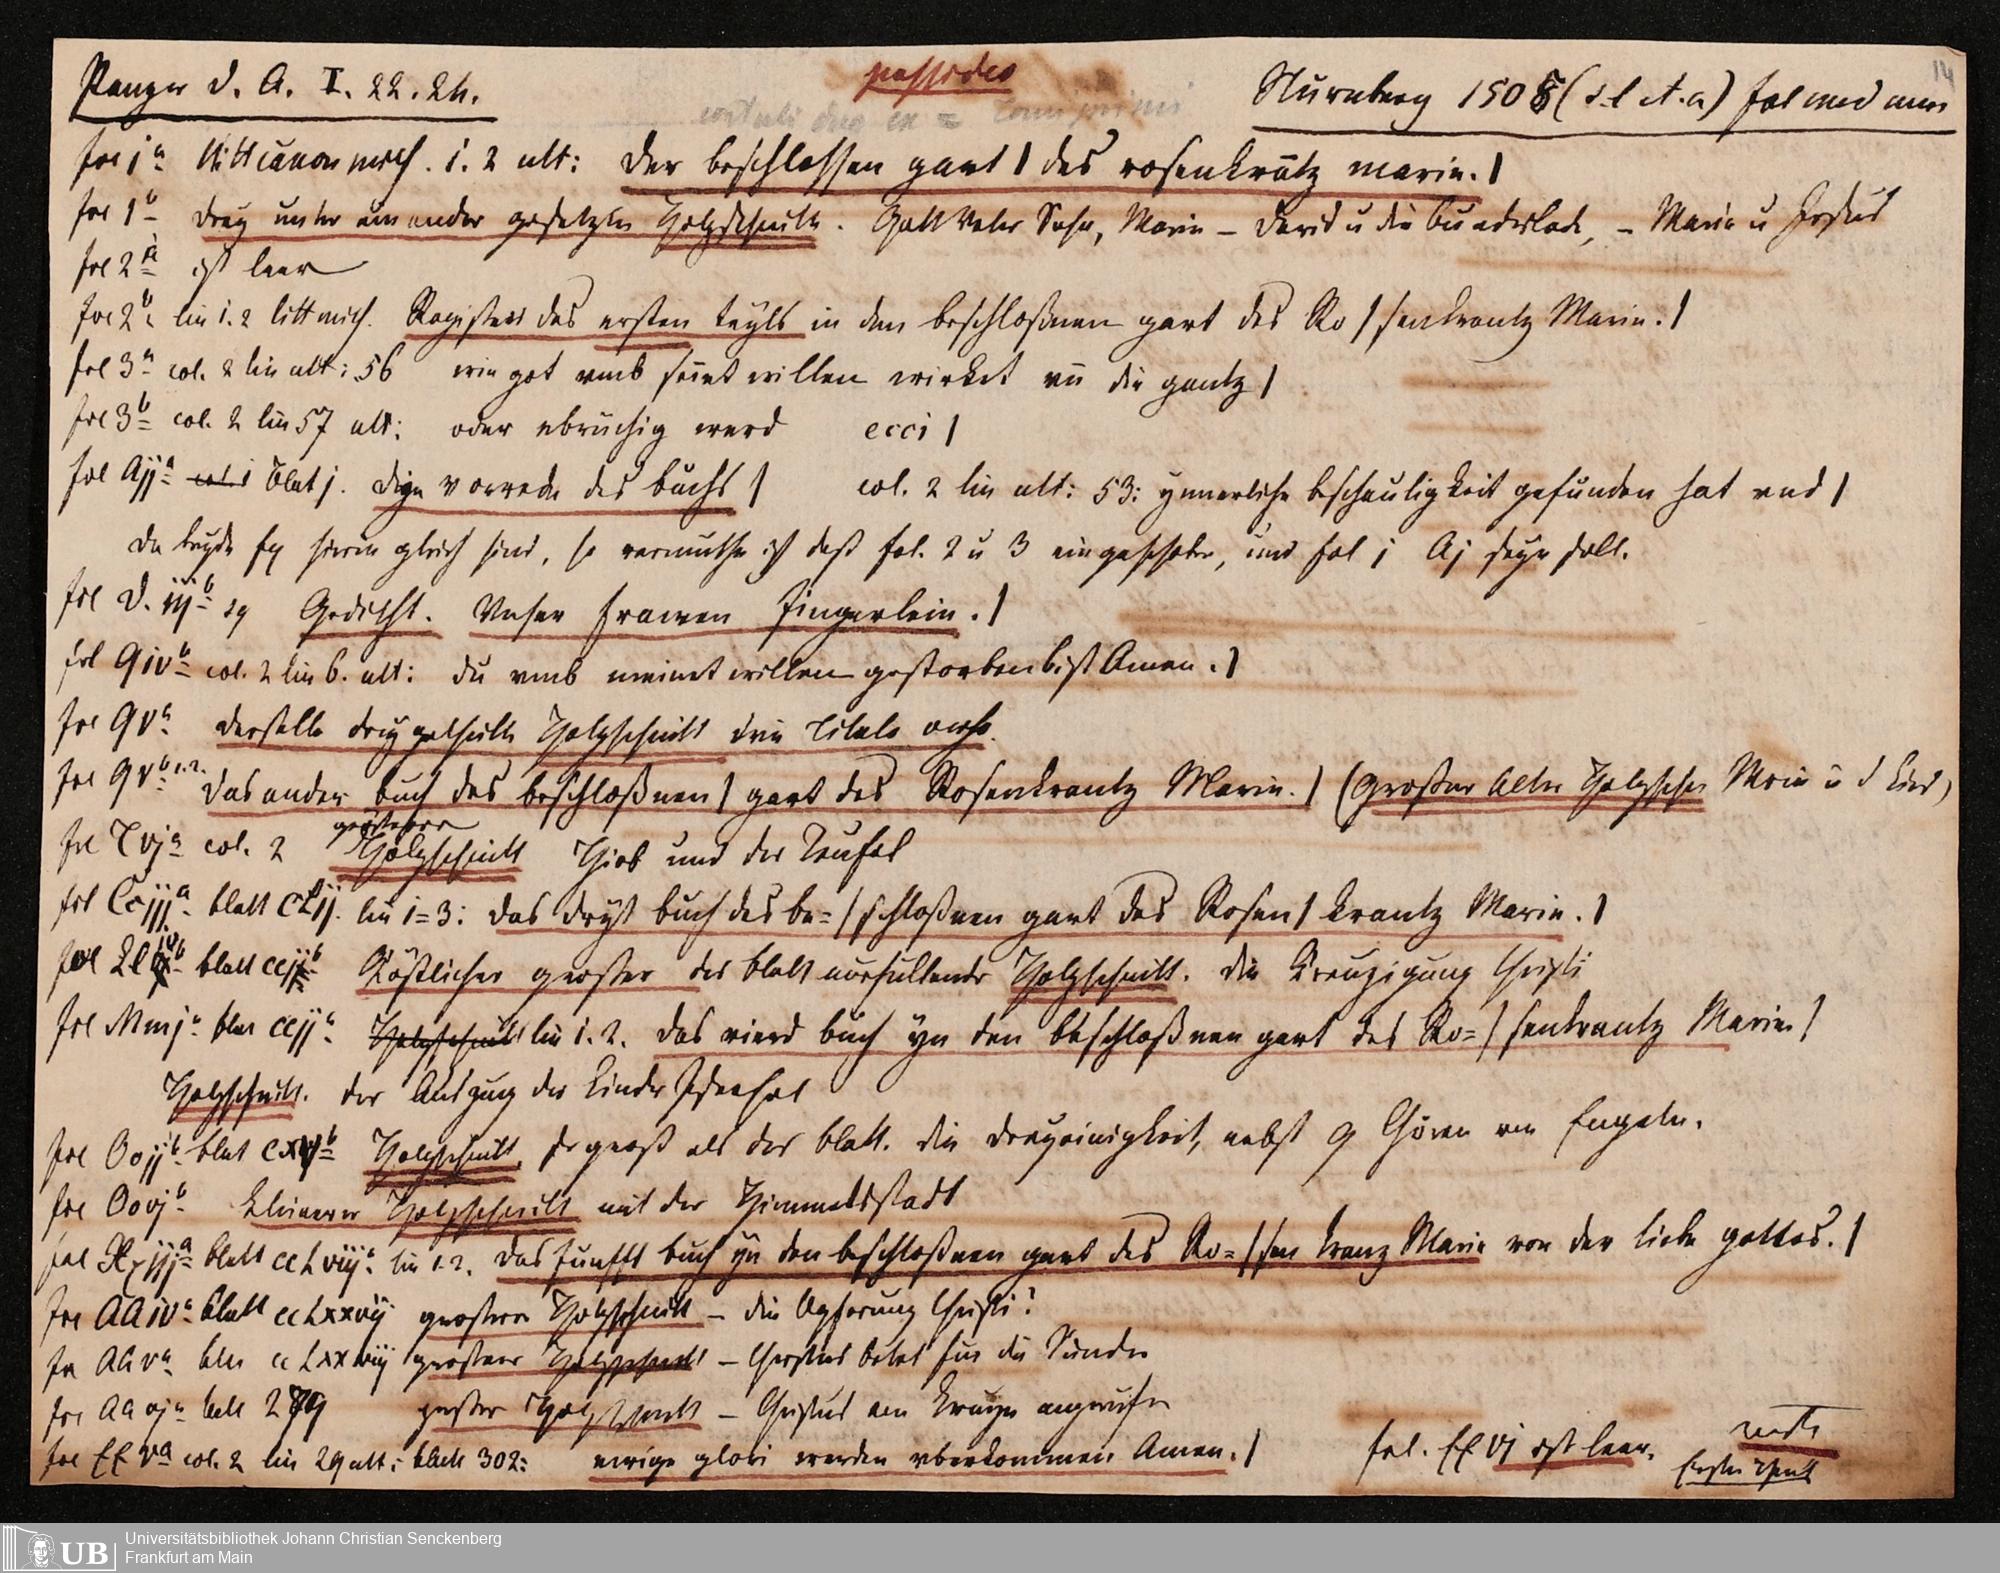 Panzer d. A. I. 22. 24.
possideo
Nürnberg 1505 (s. l. et. a.) fol med min
14
fol 1a litt canon misch. i. 2 ult: der beschlossen gart | des rosenkrātz marie. |
fol 1b drey unter einander gesetzte Holzschnitte. Gott Vater Sohn, Marie – David u die bundeslade, – Maria u Jesus
fol 2a ist leer
fol 2b lin i. 2 litt misch. Register des ersten teyls in den beschloßnen gart des Ro | senkrantz Marie. |
fol 3a col. 2 lin ult: 56 wie got vmb seinet willen wirket vn die gantz |
fol 3b col. 2 lin 57 ult: oder ebruchig werd ccci |
fol Aija col. i blat j. Dye vorrede des buchs | col. 2 lin ult: 53: ynnerliche beschauligkeit gefunden hat vnd |
da beyde hierin gleich sind, so vermuthe ich daß fol. 2 u 3 eingeschoben, und fol j Aj seyn soll.
fol D. iijb sq Gedicht. Vnser frawen fingerlein. |
fol Qivb col. 2 lin 6. ult: du vmb meinet willen gestorben bist Amen. |
fol Qva derselbe dreygetheilte Holzschnitt des Titels
fol Qvb 1.2. Das ander buch des beschloßnen | gart des Rosenkrantz Marie. | (großer alter Holzschn Marie u d Kind)
fol Tvja col. 2 größerer Holzschnitt Hiob und der Teufel
fol Cciija blatt cLij. lin i=3: das dryt buch des be= | schloßnen gart des Rosen | krantz Marie. |
fol Llivb blatt ccjb Köstlicher großer das blatt ausfullender Holzschnitt. die Kreuzigung Christi
fol Mmja blat ccija Holzschnitt lin i. 2. das vierd buch yn den beschloßnen gart des Ro= | senkrantz Marie |
Holzschnitt. der Auszug der Kinder Israhel
fol Ooijb blat Holzschnitt, so groß als das blatt. die dreyeinigkeit, nebst 9 Chören von Engeln.
fol Oovjb kleinerer Holzschnitt mit der Himmelsstadt
fol Xxiija blatt ccLviija lin 1.2. das funfft buch yn den beschloßnen gart des Ro= | sen krantz Marie von der liebe gottes. |
fol AAiva blatt ccLxxvij großerer Holzschnitt – die Opferung Christi?
fol AAva blat ccLxxviij großerer Holzschnitt – Christus betet fur die Sünder
fol AAvja blatt 279 großer Holzschnitt – Christus am Kreuze
fol FFva col. 2 lin 29 ult: blatt 302: ewige glori werden vberkommen Amen. |
fol. FFvj ist leer.
Universitätsbibliothek Johann Christian Senckenberg
Frankfurt am Main
UB